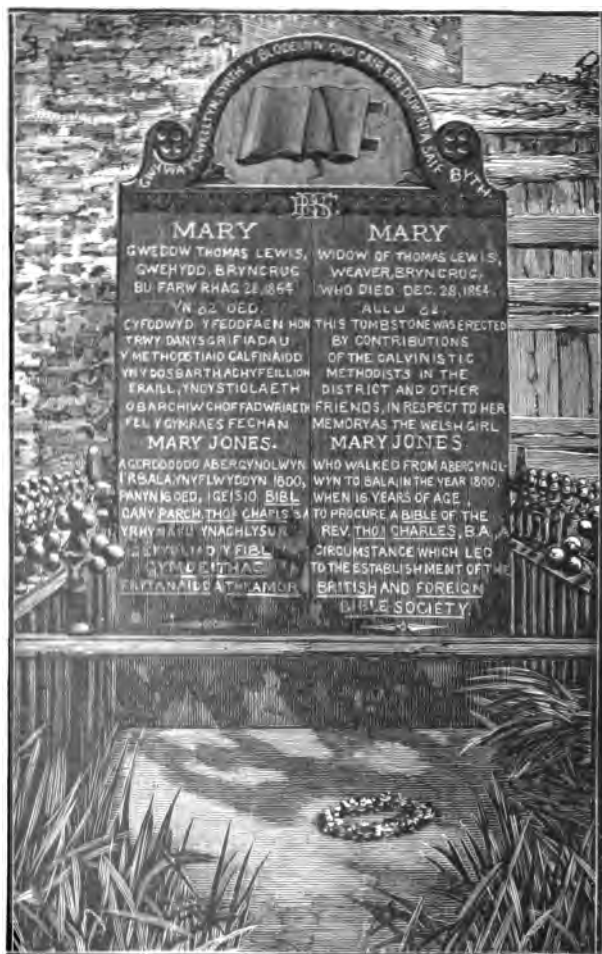 GWYWA Y GWELLTYN, SYRTH Y BLODEUYN OND GAIR EIN DUW NI A SAIF BYTH
MARY
GWEDDW THOMAS LEWIS,
GWEHYDD, BRYNCRUG
BU FARW RHAG. 28, 1864
YN 82 OED.
CYFODWYD Y FEDDFAEN HON
TRWY DANYSGRIFIADAU
Y METHODISTIAID CALFINAIDD
YN Y DOSBARTH A CHYFEILLION
ERAILL, YN DYSTIOLAETH
O BARCH I'W CHOFFADWRIAETH
FEL Y GYMRAES FECHAN
MARY JONES.
A GERDDODD O ABERGYNOLWYN
I'R BALA, YN Y FLWYDDYN 1800,
PAN YN 16 OED, I GEISIO BIBL
GAN Y PARCH. THOS CHARLES BA
YR HYN A FU YN ACHLYSUR
SEFYDLIAD Y FIBL
GYMDEITHAS
FRYTANAIDD A THRAMOR
MARY
WIDOW OF THOMAS LEWIS,
WEAVER, BRYNCRUG,
WHO DIED DEC. 28, 1864.
AGED 82.
THIS TOMBSTONE WAS ERECTED
BY CONTRIBUTIONS
OF THE CALVINISTIC
METHODISTS IN THE
DISTRICT AND OTHER
FRIENDS, IN RESPECT TO HER
MEMORY AS THE WELSH GIRL
MARY JONES
WHO WALKED FROM ABERGYNOL-
WYN TO BALA, IN THE YEAR 1800,
WHEN 16 YEARS OF AGE,
TO PROCURE A BIBLE OF THE
REV. THOS CHARLES, B.A.
CIRCUMSTANCE WHICH LED
TO THE ESTABLISHMENT OF THE
BRITISH AND FOREIGN
BIBLE SOCIETY.